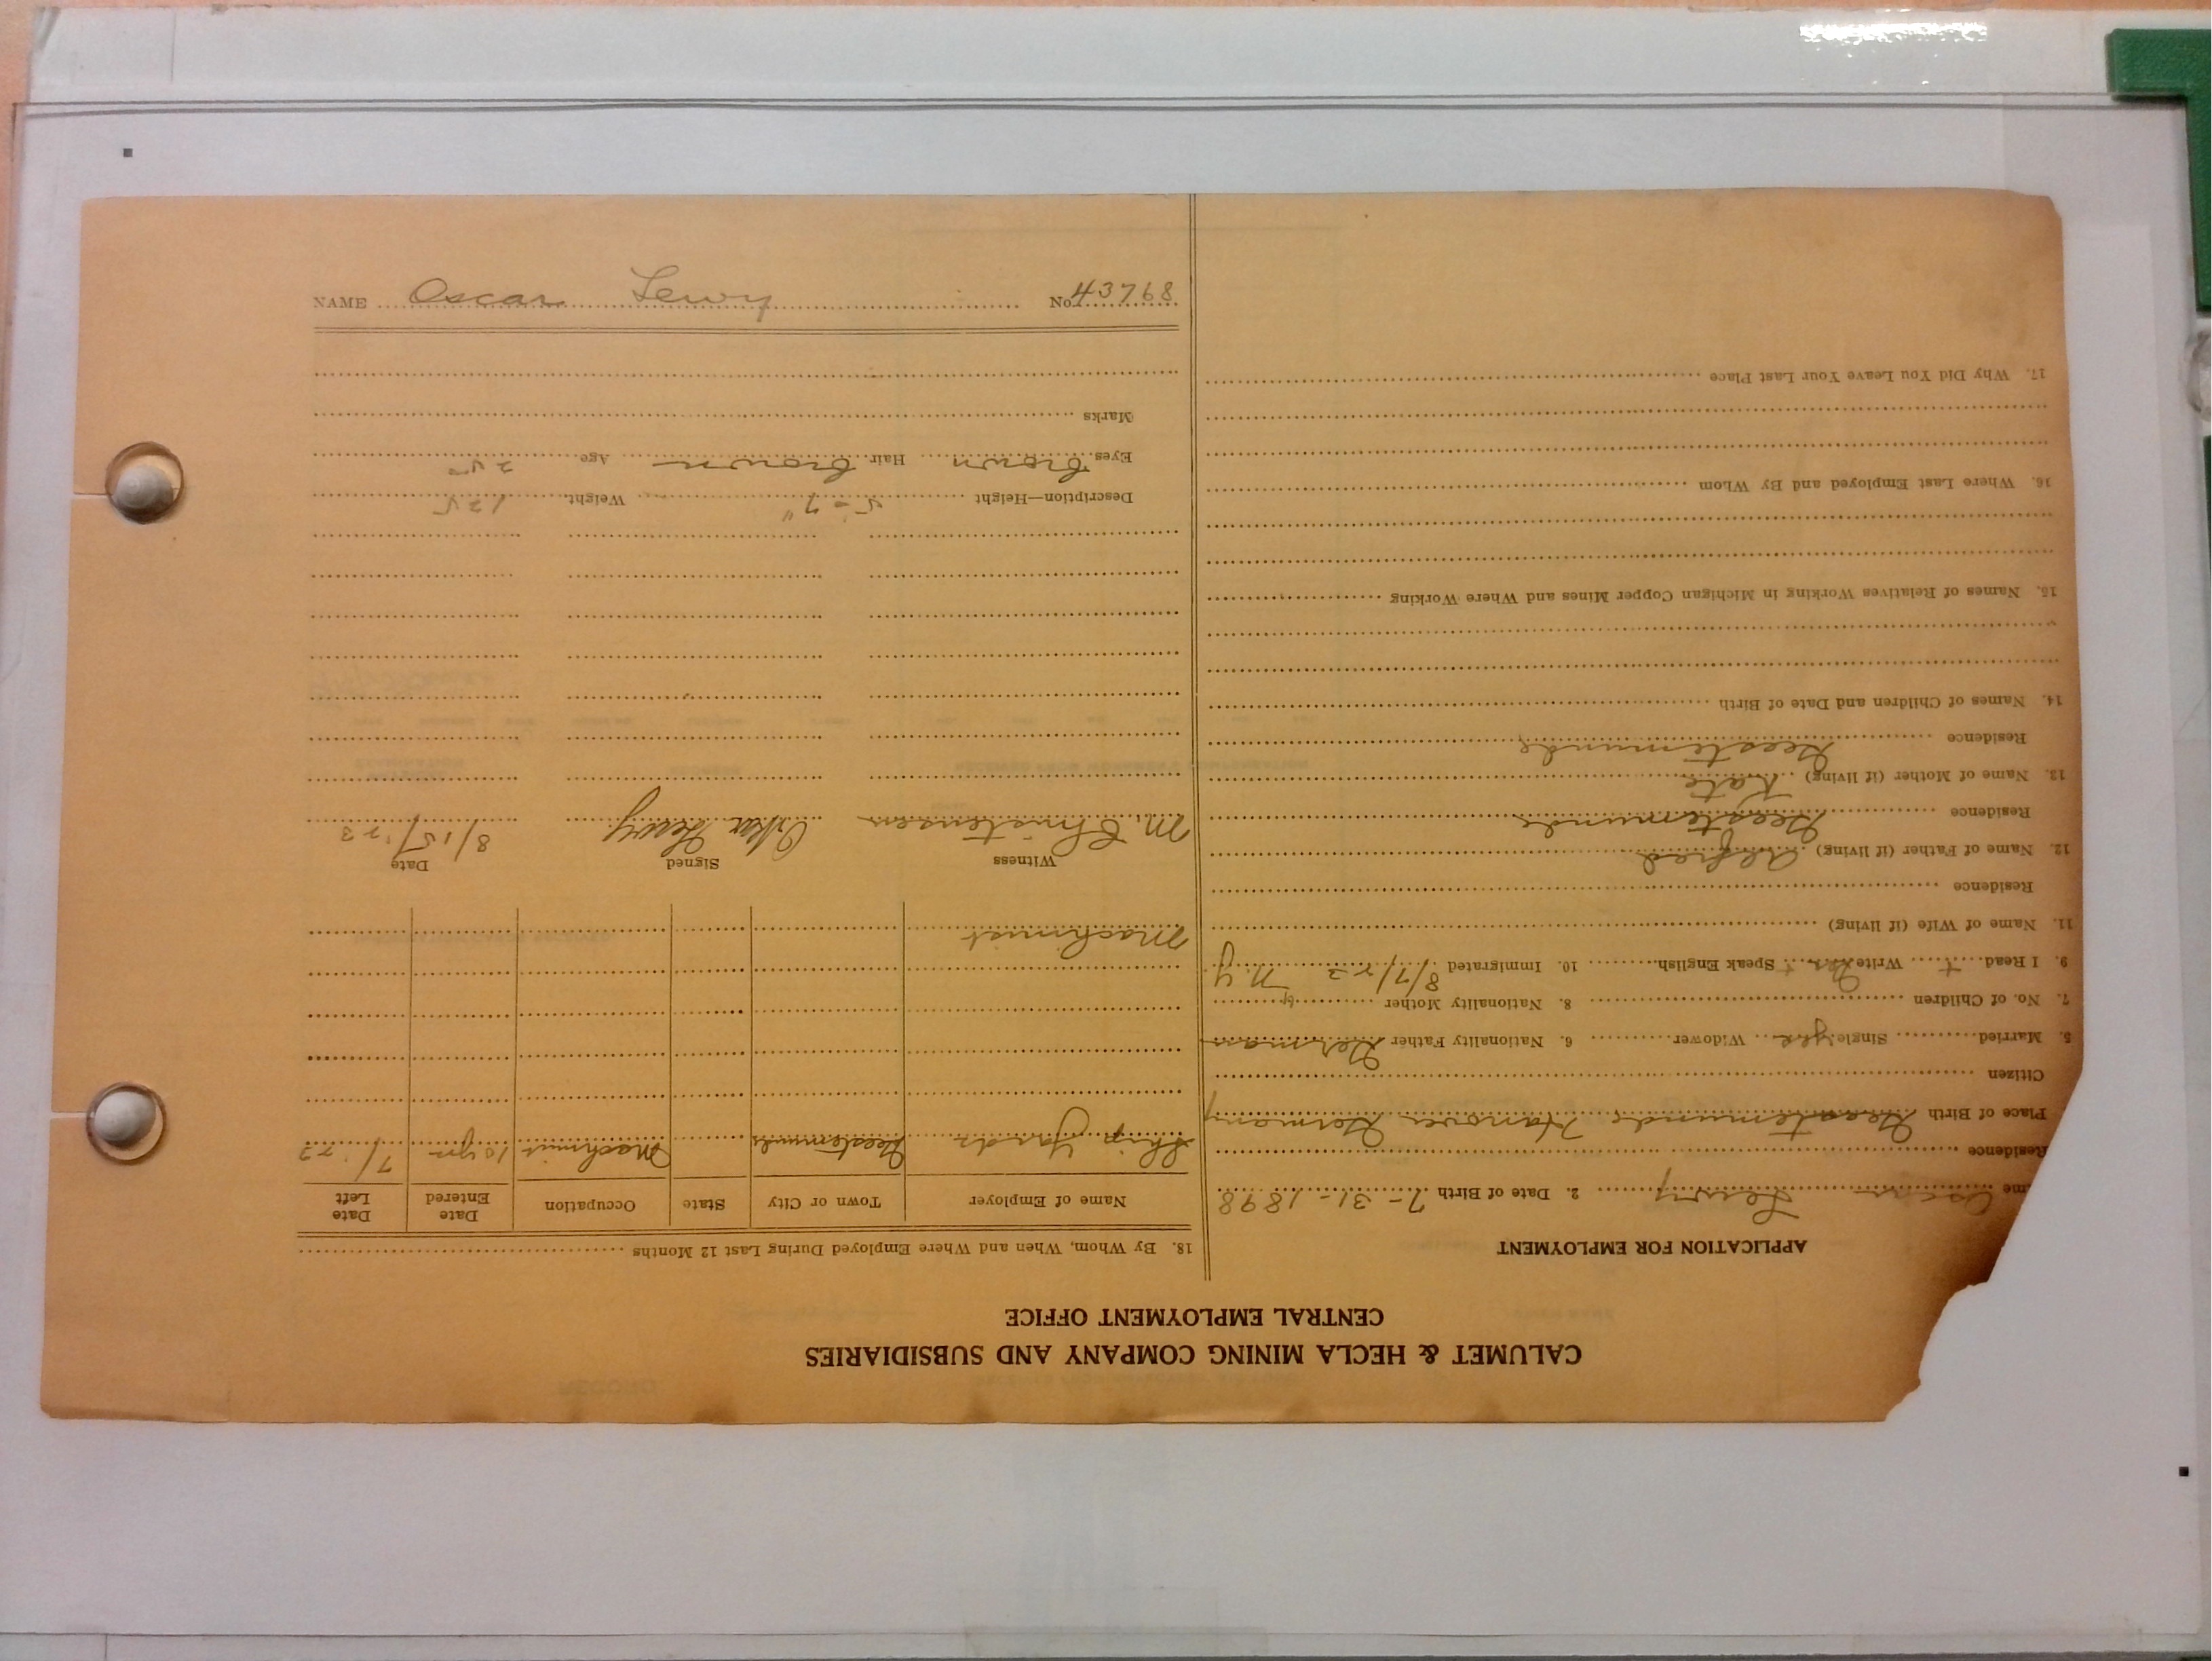 CALUMET & HECLA MINING COMPANY AND SUBSIDIARIES
CENTRAL EMPLOYMENT OFFICE
APPLICATION FOR EMPLOYMENT
me Oscar Lewy 2. Date of Birth 7-31-1898
Residence
Place of Birth Geestemunde Hanover Germany
Citizen
5. Married Single yes Widower 6. Nationality Father German
7. No. of Children 8. Nationality Mother "
9. I Read + Write Yes + Speak English 10. Immigrated 8/7/23 N Y
11. Name of Wife (if living)
Residence
12. Name of Father (if living) Alfred
Residence Geestemunde
13. Name of Mother (if living) Kate
Residence Geestemunde
14. Names of Children and Date of Birth
15. Names of Relatives Working in Michigan Copper Mines and Where Working
16. Where Last Employed and By Whom
17. Why Did You Leave Your Last Place
18. By Whom, When and Where Employed During Last 12 Months
Name of Employer Town or City State Occupation Date Entered Date Left
Ship Yards Geestemunde Machinist 10 yrs 7/'23
Machinist
Witness Signed Date
M. Christensen Oskar Lewy 8/15/'23
Description—Height 5'-7" Weight 125
Eyes brown Hair brown Age 25
Marks
NAME Oscar Lewy No. 43768